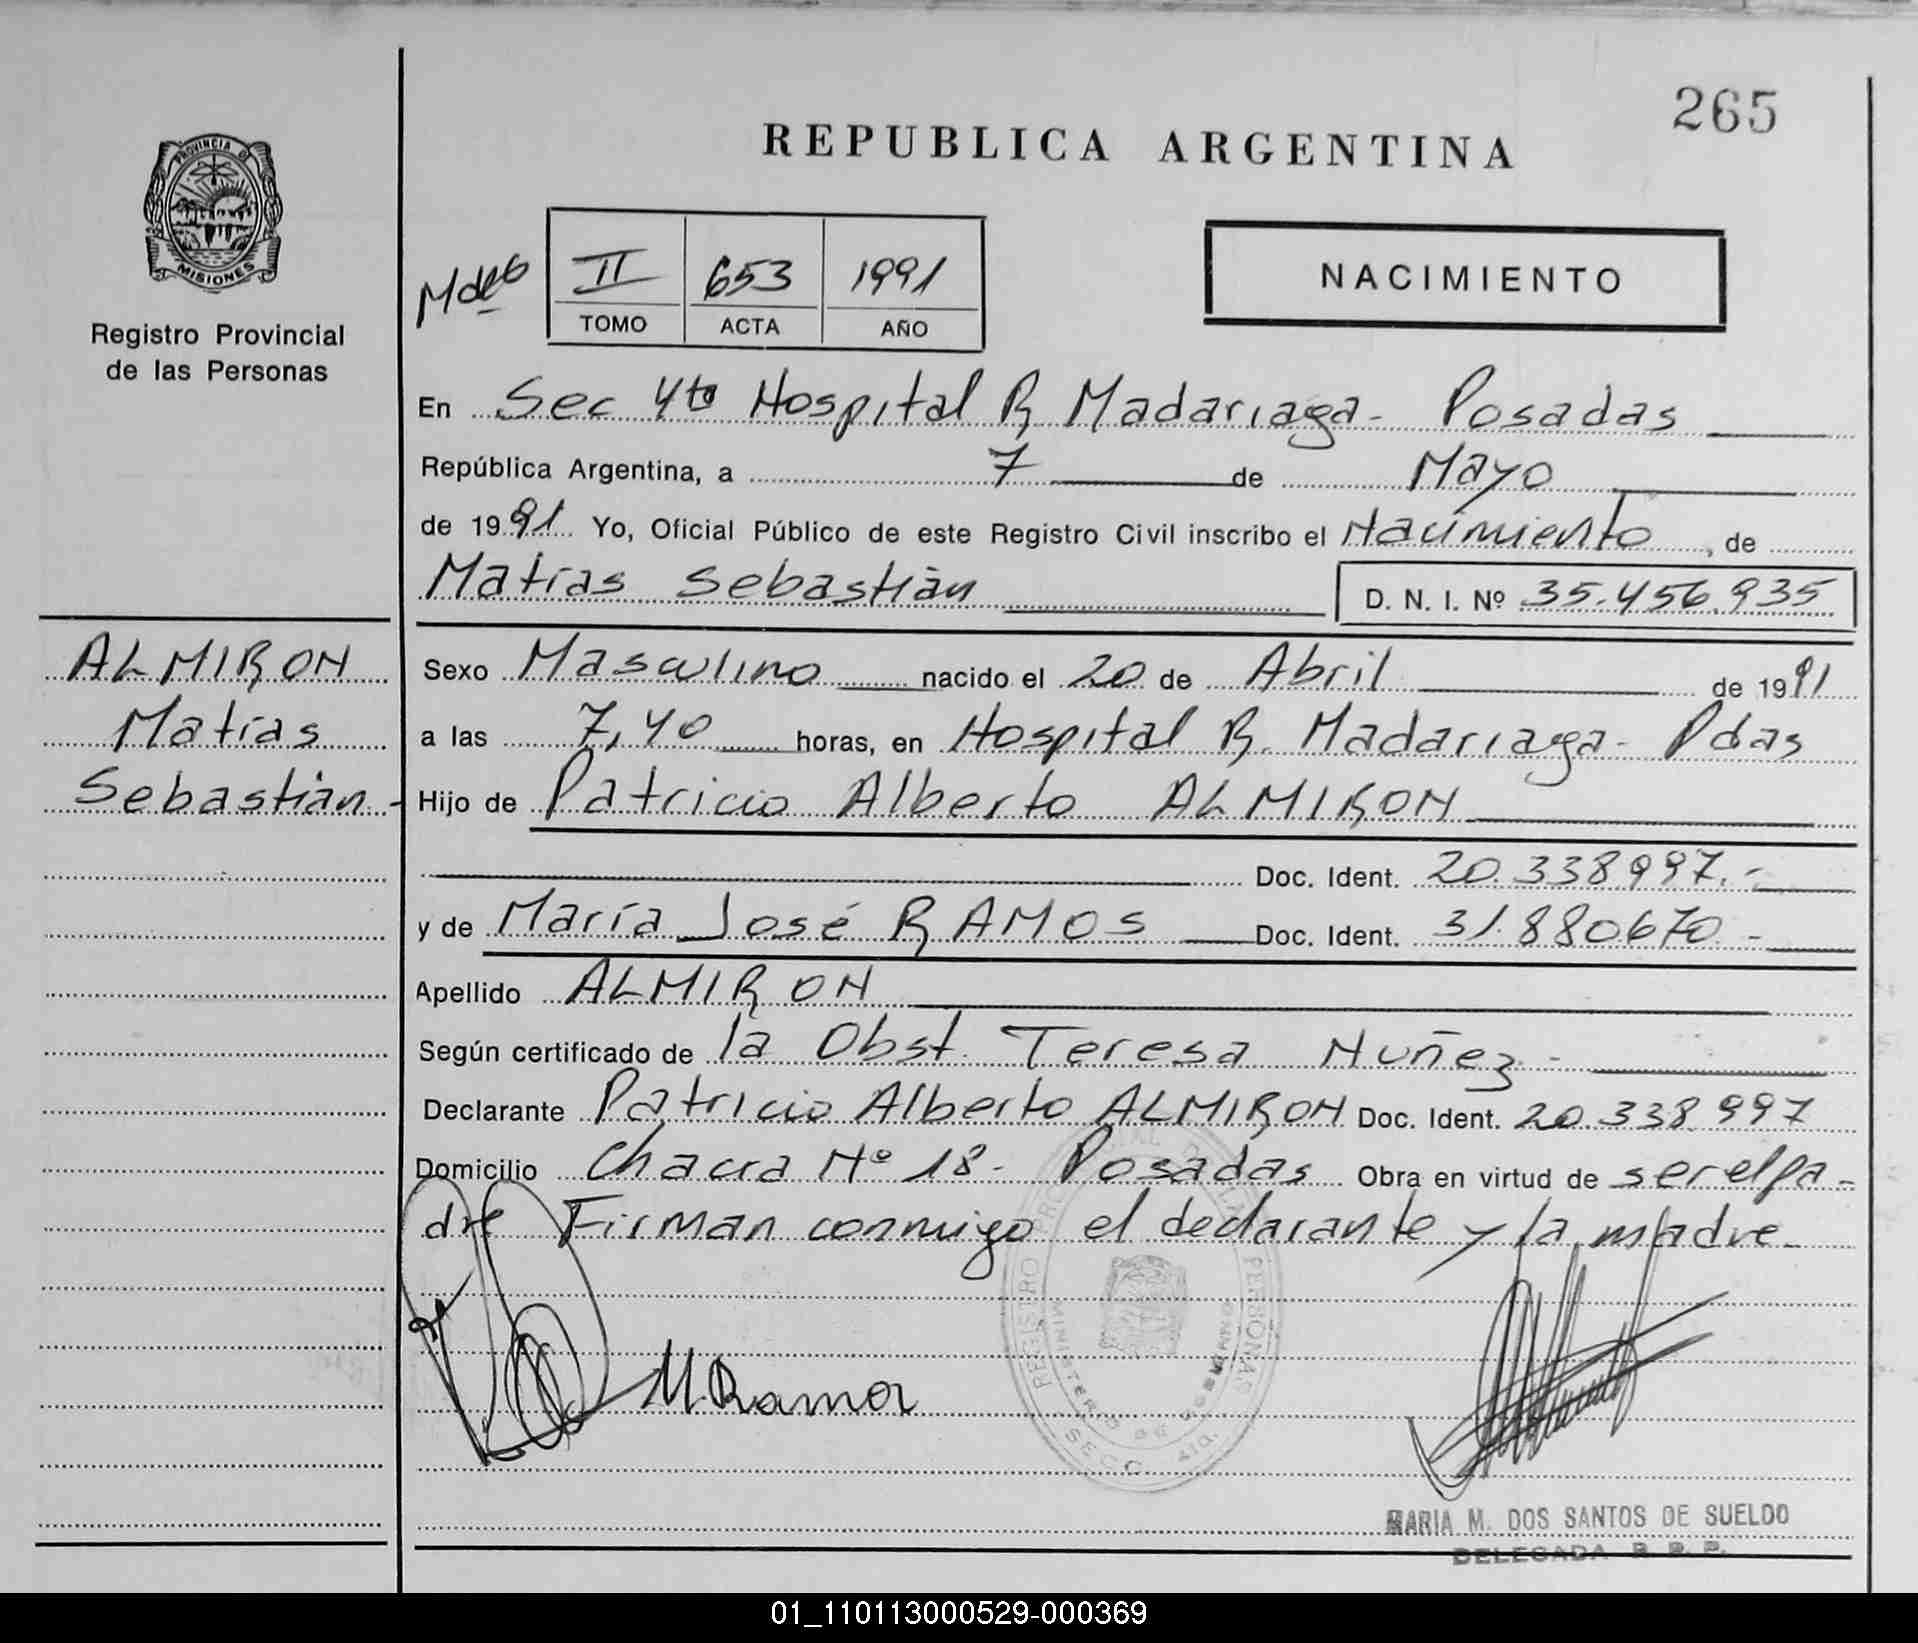 265
REPUBLICA ARGENTINA
PROVINCIA DE
MISIONES
Registro Provincial
de las Personas
II 653 1991
TOMO ACTA AÑO
NACIMIENTO
En Sec 4ta Hospital R Madariaga - Posadas
República Argentina, a 7 de Mayo
de 1991 Yo, Oficial Público de este Registro Civil inscribo el Nacimiento, de
Matías Sebastián D. N. I. Nº 35.456.935
ALMIRON
Matías
Sebastián -
Sexo Masculino nacido el 20 de Abril de 1991
a las 7,40 horas, en Hospital R. Madariaga - Pdas
Hijo de Patricio Alberto ALMIRON
Doc. Ident. 20.338.997.-
y de María José RAMOS Doc. Ident. 31.880670.-
Apellido ALMIRON
Según certificado de la Obst. Teresa Nuñez -
Declarante Patricio Alberto ALMIRON Doc. Ident. 20.338.997
Domicilio Chacra Nº 18 - Posadas Obra en virtud de ser el pa-
dre Firman conmigo el declarante y la madre -
REGISTRO PERSONAS
MINISTERIO DE GOBIERNO
SECC. 4ta.
M. Ramos
MARIA M. DOS SANTOS DE SUELDO
DELEGADA R. P. P.
01_110113000529-000369